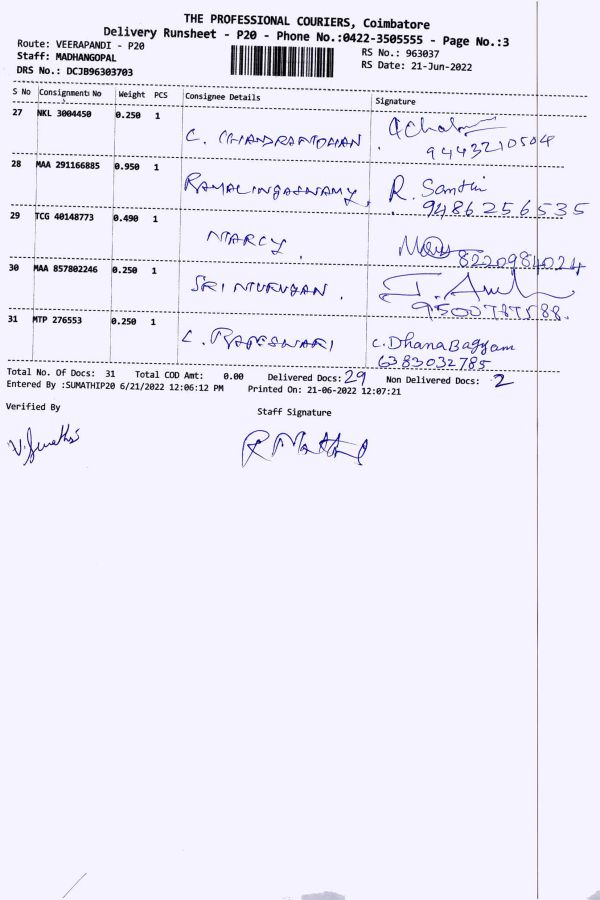 THE PROFESSIONAL COURIERS, Coimbatore
Delivery Runsheet - P20 - Phone No.:0422-3505555 - Page No.:3
Route: VEERAPANDI - P20 RS No.: 963037
Staff: MADHANGOPAL RS Date: 21-Jun-2022
DRS No.: DCJB96303703
S No Consignment No Weight PCS Consignee Details Signature
27 NKL 3004450 0.250 1
C. CHANDRAMOHAN
9443210504
28 MAA 291166885 0.950 1
RAMALINGASWAMY R. Santhi
9486256535
29 TCG 40148773 0.490 1
MARCY
8220984024
30 MAA 857802246 0.250 1
SRI
9500787588.
31 MTP 276553 0.250 1
C. RAJESWARI C. DhanaBagyam
6383032785
Total No. Of Docs: 31 Total COD Amt: 0.00 Delivered Docs: 29 Non Delivered Docs: 2
Entered By :SUMATHIP20 6/21/2022 12:06:12 PM Printed On: 21-06-2022 12:07:21
Verified By
Staff Signature